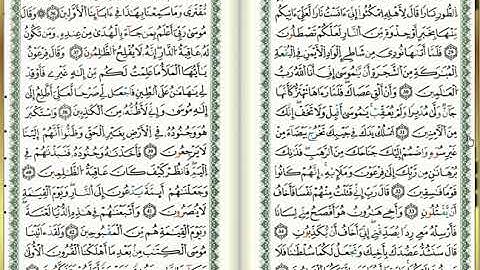 ٱلطُّورِ نَارًا قَالَ لِأَهْلِهِ ٱمْكُثُوٓا۟ إِنِّىٓ ءَانَسْتُ نَارًا لَّعَلِّىٓ ءَاتِيكُم
مِّنْهَا بِخَبَرٍ أَوْ جَذْوَةٍ مِّنَ ٱلنَّارِ لَعَلَّكُمْ تَصْطَلُونَ
٢٩ فَلَمَّآ أَتَىٰهَا نُودِىَ مِن شَٰطِئِ ٱلْوَادِ ٱلْأَيْمَنِ فِى ٱلْبُقْعَةِ
ٱلْمُبَٰرَكَةِ مِنَ ٱلشَّجَرَةِ أَن يَٰمُوسَىٰٓ إِنِّىٓ أَنَا ٱللَّهُ رَبُّ
ٱلْعَٰلَمِينَ ٣٠ وَأَنْ أَلْقِ عَصَاكَ فَلَمَّا رَءَاهَا تَهْتَزُّ كَأَنَّهَا
جَآنٌّ وَلَّىٰ مُدْبِرًا وَلَمْ يُعَقِّبْ يَٰمُوسَىٰٓ أَقْبِلْ وَلَا تَخَفْ إِنَّكَ
مِنَ ٱلْءَامِنِينَ ٣١ ٱسْلُكْ يَدَكَ فِى جَيْبِكَ تَخْرُجْ بَيْضَآءَ مِنْ
غَيْرِ سُوٓءٍ وَٱضْمُمْ إِلَيْكَ جَنَاحَكَ مِنَ ٱلرَّهْبِ فَذَٰنِكَ
بُرْهَٰنَانِ مِن رَّبِّكَ إِلَىٰ فِرْعَوْنَ وَمَلَإِي۟هِۦٓ إِنَّهُمْ كَانُوا۟
قَوْمًا فَٰسِقِينَ ٣٢ قَالَ رَبِّ إِنِّى قَتَلْتُ مِنْهُمْ نَفْسًا فَأَخَافُ
أَن يَقْتُلُونِ ٣٣ وَأَخِى هَٰرُونُ هُوَ أَفْصَحُ مِنِّى لِسَانًا
فَأَرْسِلْهُ مَعِىَ رِدْءًا يُصَدِّقُنِىٓ إِنِّىٓ أَخَافُ أَن يُكَذِّبُونِ ٣٤
قَالَ سَنَشُدُّ عَضُدَكَ بِأَخِيكَ وَنَجْعَلُ لَكُمَا سُلْطَٰنًا فَلَا
مُّفْتَرًى وَمَا سَمِعْنَا بِهَٰذَا فِىٓ ءَابَآئِنَا ٱلْأَوَّلِينَ ٣٦ وَقَالَ
مُوسَىٰ رَبِّىٓ أَعْلَمُ بِمَن جَآءَ بِٱلْهُدَىٰ مِنْ عِندِهِۦ وَمَن تَكُونُ
لَهُۥ عَٰقِبَةُ ٱلدَّارِ إِنَّهُۥ لَا يُفْلِحُ ٱلظَّٰلِمُونَ ٣٧ وَقَالَ فِرْعَوْنُ
يَٰٓأَيُّهَا ٱلْمَلَأُ مَا عَلِمْتُ لَكُم مِّنْ إِلَٰهٍ غَيْرِى فَأَوْقِدْ
لِى يَٰهَٰمَٰنُ عَلَى ٱلطِّينِ فَٱجْعَل لِّى صَرْحًا لَّعَلِّىٓ أَطَّلِعُ إِلَىٰٓ
إِلَٰهِ مُوسَىٰ وَإِنِّى لَأَظُنُّهُۥ مِنَ ٱلْكَٰذِبِينَ ٣٨ وَٱسْتَكْبَرَ
هُوَ وَجُنُودُهُۥ فِى ٱلْأَرْضِ بِغَيْرِ ٱلْحَقِّ وَظَنُّوٓا۟ أَنَّهُمْ إِلَيْنَا
لَا يُرْجَعُونَ ٣٩ فَأَخَذْنَٰهُ وَجُنُودَهُۥ فَنَبَذْنَٰهُمْ فِى
ٱلْيَمِّ فَٱنظُرْ كَيْفَ كَانَ عَٰقِبَةُ ٱلظَّٰلِمِينَ ٤٠
وَجَعَلْنَٰهُمْ أَئِمَّةً يَدْعُونَ إِلَى ٱلنَّارِ وَيَوْمَ ٱلْقِيَٰمَةِ
لَا يُنصَرُونَ ٤١ وَأَتْبَعْنَٰهُمْ فِى هَٰذِهِ ٱلدُّنْيَا لَعْنَةً
وَيَوْمَ ٱلْقِيَٰمَةِ هُم مِّنَ ٱلْمَقْبُوحِينَ ٤٢ وَلَقَدْ ءَاتَيْنَا
مُوسَى ٱلْكِتَٰبَ مِنۢ بَعْدِ مَآ أَهْلَكْنَا ٱلْقُرُونَ ٱلْأُولَىٰ